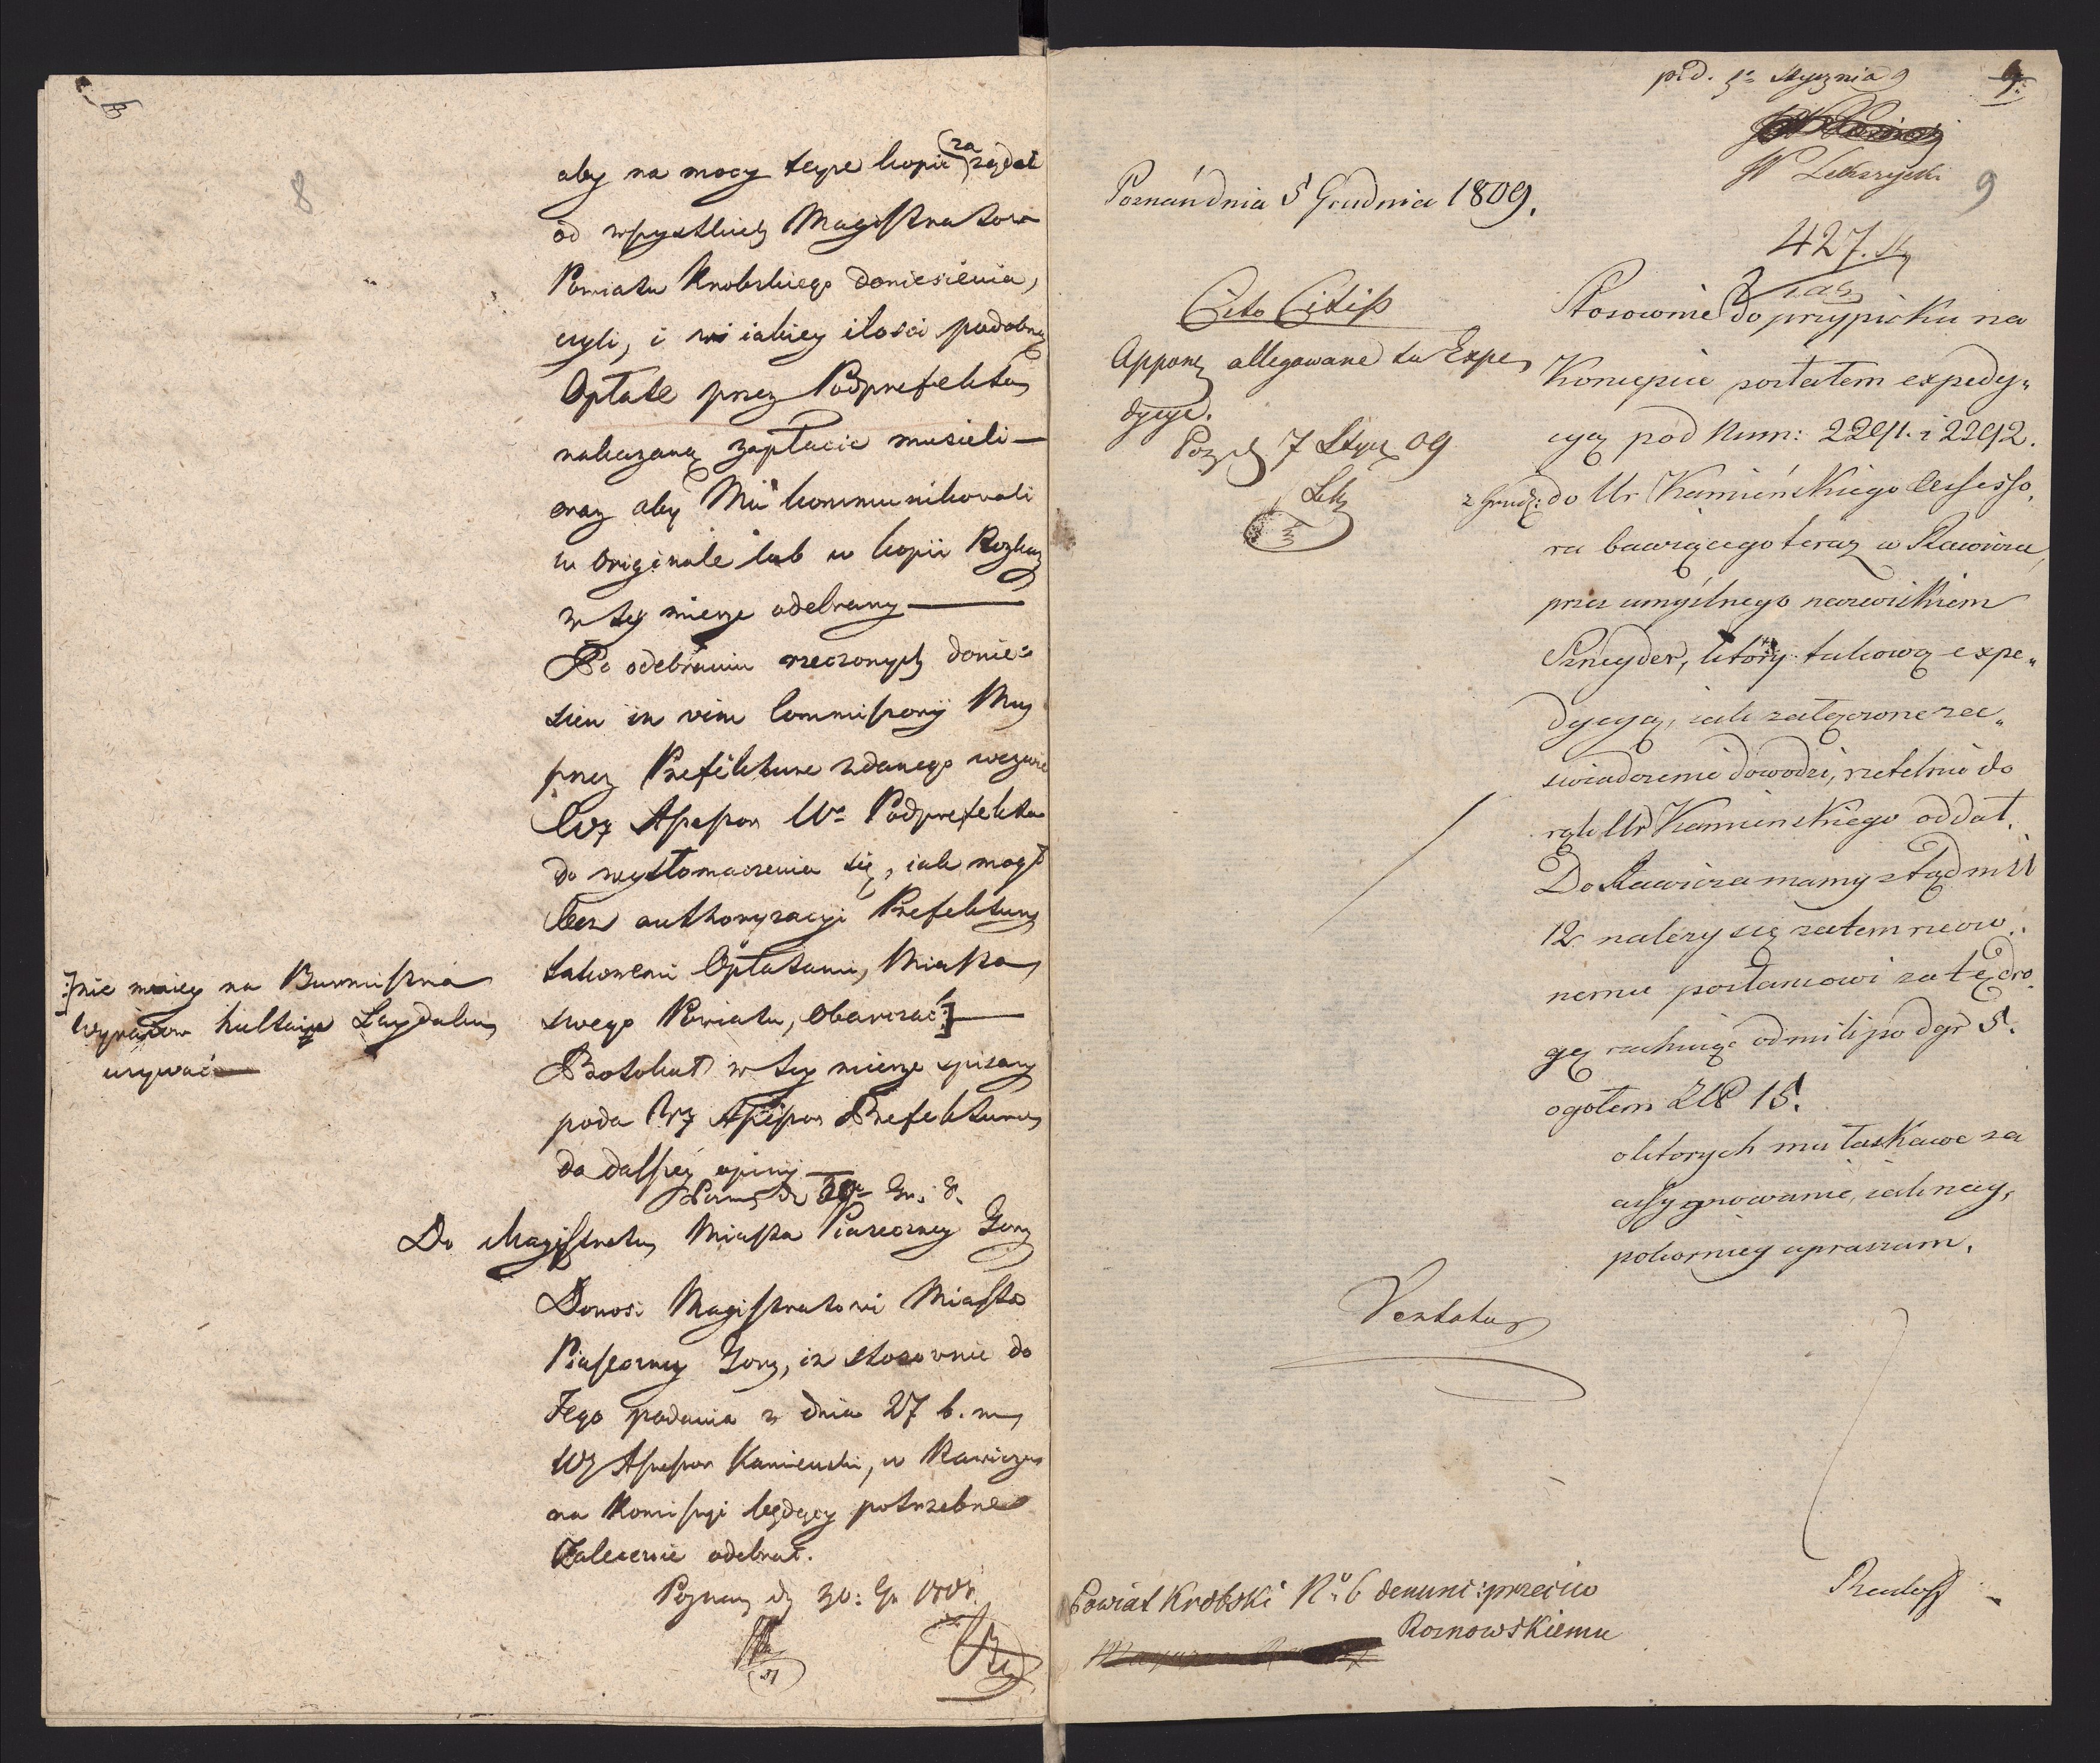 8
aby na mocy teyże kopii zażądał
za
od wszystkich Magistratow
Powiatu Krobskiego doniesienia,
czyli, i w iakiey ilości podobną
Opłatę przez Podprefekta
nakazaną zapłacić musieli —
oraz aby Mu kommunikowali
w Originale lub w kopii Rozkaz
w tey mierze odebrany —
Po odebraniu rzeczonych donie=
sien in vim Commissorij Mu
przez Prefekturę zdanego wezwie
Wz Assessor Wo Podprefekta
do wytłomaczenia się, iak mogł
bez authoryzacyi Prefektury
takowemi Opłatami, Miasta
swego Powiatu, Obarczać :]
:] nie mniey na Burmistrza
wyrazow hultaia Laydaka
używać —
Protokuł w tey mierze spisany
poda Wz Assessor Prefekturze
do dalszey opinij —
Do Magistratu Miasta Piaseczney Gory
Donosi Magistratowi Miasta
Piaseczney Gory, iż stosownie do
Jego podania z dnia 27 b. m
Wz Assessor Kamieński, w Rawiczu
na Komissyi będący potrzebne
Zalecenie odebrał.
Poznań d 30: Gr 1808.
9.
9
Poznań dnia 5 Grudnia 1809.
427.
Cito Citiss
Appon allegowane tu Expe
dycye.
Poz d 7 Stycz 09
Stosownie do przypisku na
Koncepcie posłałem expedy„
cyą pod Num: 2291. i 2292.
z Grudz: do Ur Kamieńskiego Assesso„
ra bawiącego teraz w Rawiczu,
przez umyślnego nazwiskiem
Sznyder, który takową expe„
dycyą, iak załączone za„
świadczenie dowodzi, rzetelnie do
rąk Ur Kamienskiego oddał.
Do Rawicza mamy ztąd mil
12 należy się zatem rzeczo„
nemu posłańcowi za tę dro„
gę rachuiąc od mili po dgr 5.
ogołem ZłP 15.
o ktorych mu łaskawe za
assygnowanie, iak nay„
pokorniey upraszam.
Vertatur
Powiat Krobski No 6 denunc: przeciw
Roznowskiemu